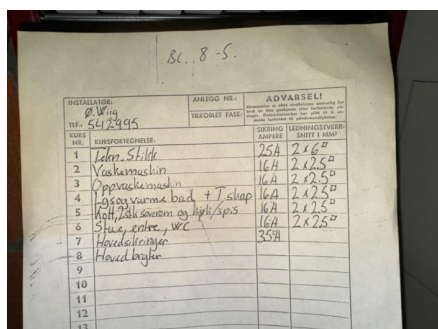 BL. 8-5.
INSTALLATØR:
Ø. Wiig
TLF.: 542995
ANLEGG NR.:
TILKOBLET FASE:
ADVARSEL!
KURS NR.
KURSFORTEGNELSE:
SIKRING AMPERE
LEDNINGSTVERR-
SNITT I MM²
1 Tekn. Stikk 25A 2 x 6□
2 Vaskemaskin 16A 2 x 2.5□
3 Oppvaskemaskin 16A 2 x 2.5□
4 Lys og varme bad + T.skap 16A 2 x 2.5□
5 Kott, soverom og kjøk/spis 16A 2 x 2.5□
6 Stue, entre, WC 16A 2 x 2.5□
7 Hovedsikringer 35A
8 Hoved bryter
9
10
11
12
13